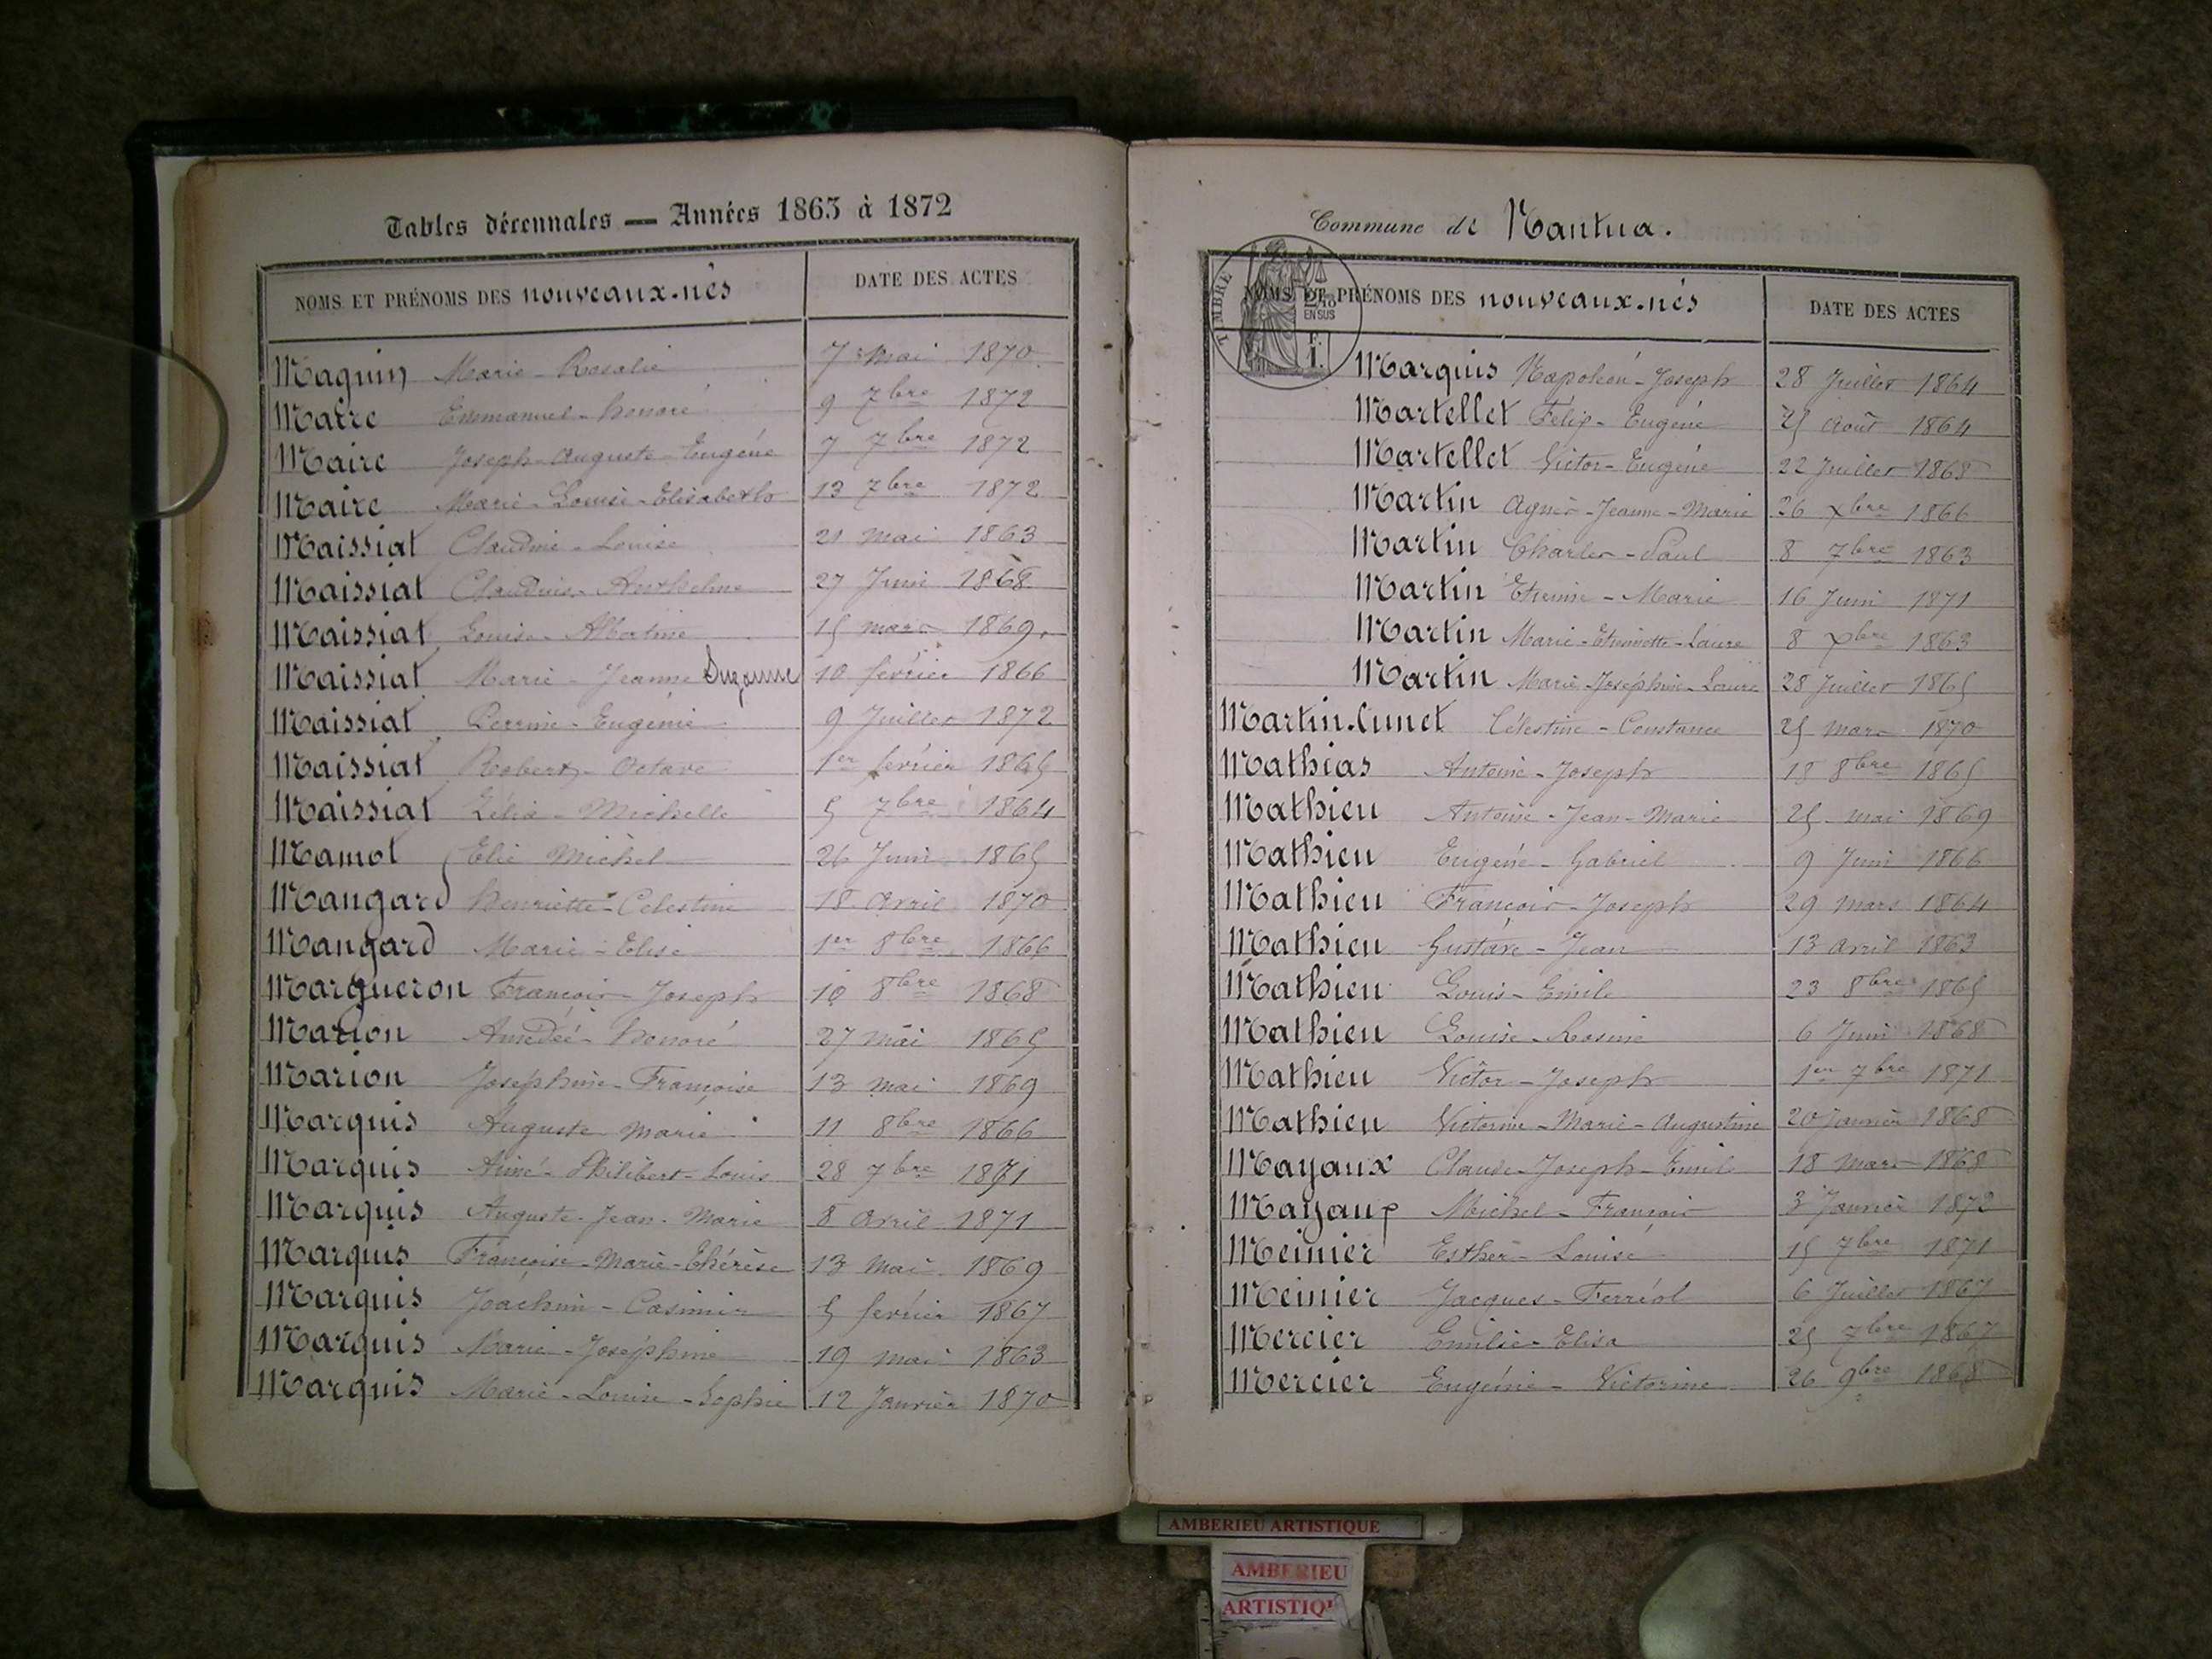 Tables décennales — Années 1863 à 1872
NOMS ET PRÉNOMS DES nouveaux-nés DATE DES ACTES
Maguin Marie-Rosalie 7 Mai 1870
Maire Emmanuel-honoré 9 7bre 1872
Maire Joseph-Auguste-Eugène 7 7bre 1872
Maire Marie-Louise-Elisabeth 13 7bre 1872
Maissiat Claudine-Louise 21 Mai 1863
Maissiat Anthelme 27 Juin 1868
Maissiat Louise-Albertine 15 mars 1869
Maissiat Marie-Jeanne Suzanne 10 février 1866
Maissiat Perrine-Eugénie 9 Juillet 1872
Maissiat Robert-Octave 1er février 1865
Maissiat Zélia-Michelle 5 7bre 1864
Mamot Elie Michel 26 Juin 1865
Mangard henriette-Celestine 18 Avril 1870
Mangard Marie-Elise 1er 8bre 1866
Margueron François-Joseph 10 8bre 1868
Marion Amédée-honoré 27 Mai 1865
Marion Joséphine-Françoise 13 mai 1869
Marquis Auguste Marie 11 8bre 1866
Marquis Aimé-Philibert-Louis 28 7bre 1871
Marquis Auguste-Jean-Marie 8 Avril 1871
Marquis Françoise-Marie-Thérèse 13 Mai 1869
Marquis Joachim-Casimir 5 février 1867
Marquis Marie-Joséphine 19 mai 1863
Marquis Marie-Louise-Sophie 12 Janvier 1870
Commune de Nantua.
TIMBRE
2/10 EN SUS
1 F.
NOMS ET PRÉNOMS DES nouveaux-nés DATE DES ACTES
Marquis Napoléon-Joseph 28 Juillet 1864
Martellet Félix-Eugène 25 Août 1864
Martellet Victor-Eugène 22 Juillet 1868
Martin Agnès-Jeanne-Marie 26 xbre 1866
Martin Charles-Paul 8 7bre 1863
Martin Etienne-Marie 16 Juin 1871
Martin Marie-Etiennette-Laure 8 xbre 1863
Martin Marie-Joséphine-Laure 28 Juillet 1865
Martin-Cunet Célestine-Constance 25 mars 1870
Mathias Antoine-Joseph 18 8bre 1865
Mathieu Antoine-Jean-Marie 25 mai 1869
Mathieu Eugène-Gabriel 9 Juin 1866
Mathieu François-Joseph 29 mars 1864
Mathieu Gustave-Jean 13 avril 1863
Mathieu Louis-Emile 23 8bre 1865
Mathieu Louise-Rosine 6 Juin 1868
Mathieu Victor-Joseph 1er 7bre 1871
Mathieu Victorine-Marie-Augustine 20 Janvier 1868
Mayaux Claude-Joseph-Emile 18 Mars 1868
Mayaux Michel-François 3 Janvier 1872
Meinier Esther-Louise 15 7bre 1871
Meinier Jacques-Ferréol 6 Juillet 1867
Mercier Emilie-Elisa 25 7bre 1867
Mercier Eugénie-Victorine 26 9bre 1868
AMBERIEU ARTISTIQUE
AMBERIEU
ARTISTIQU